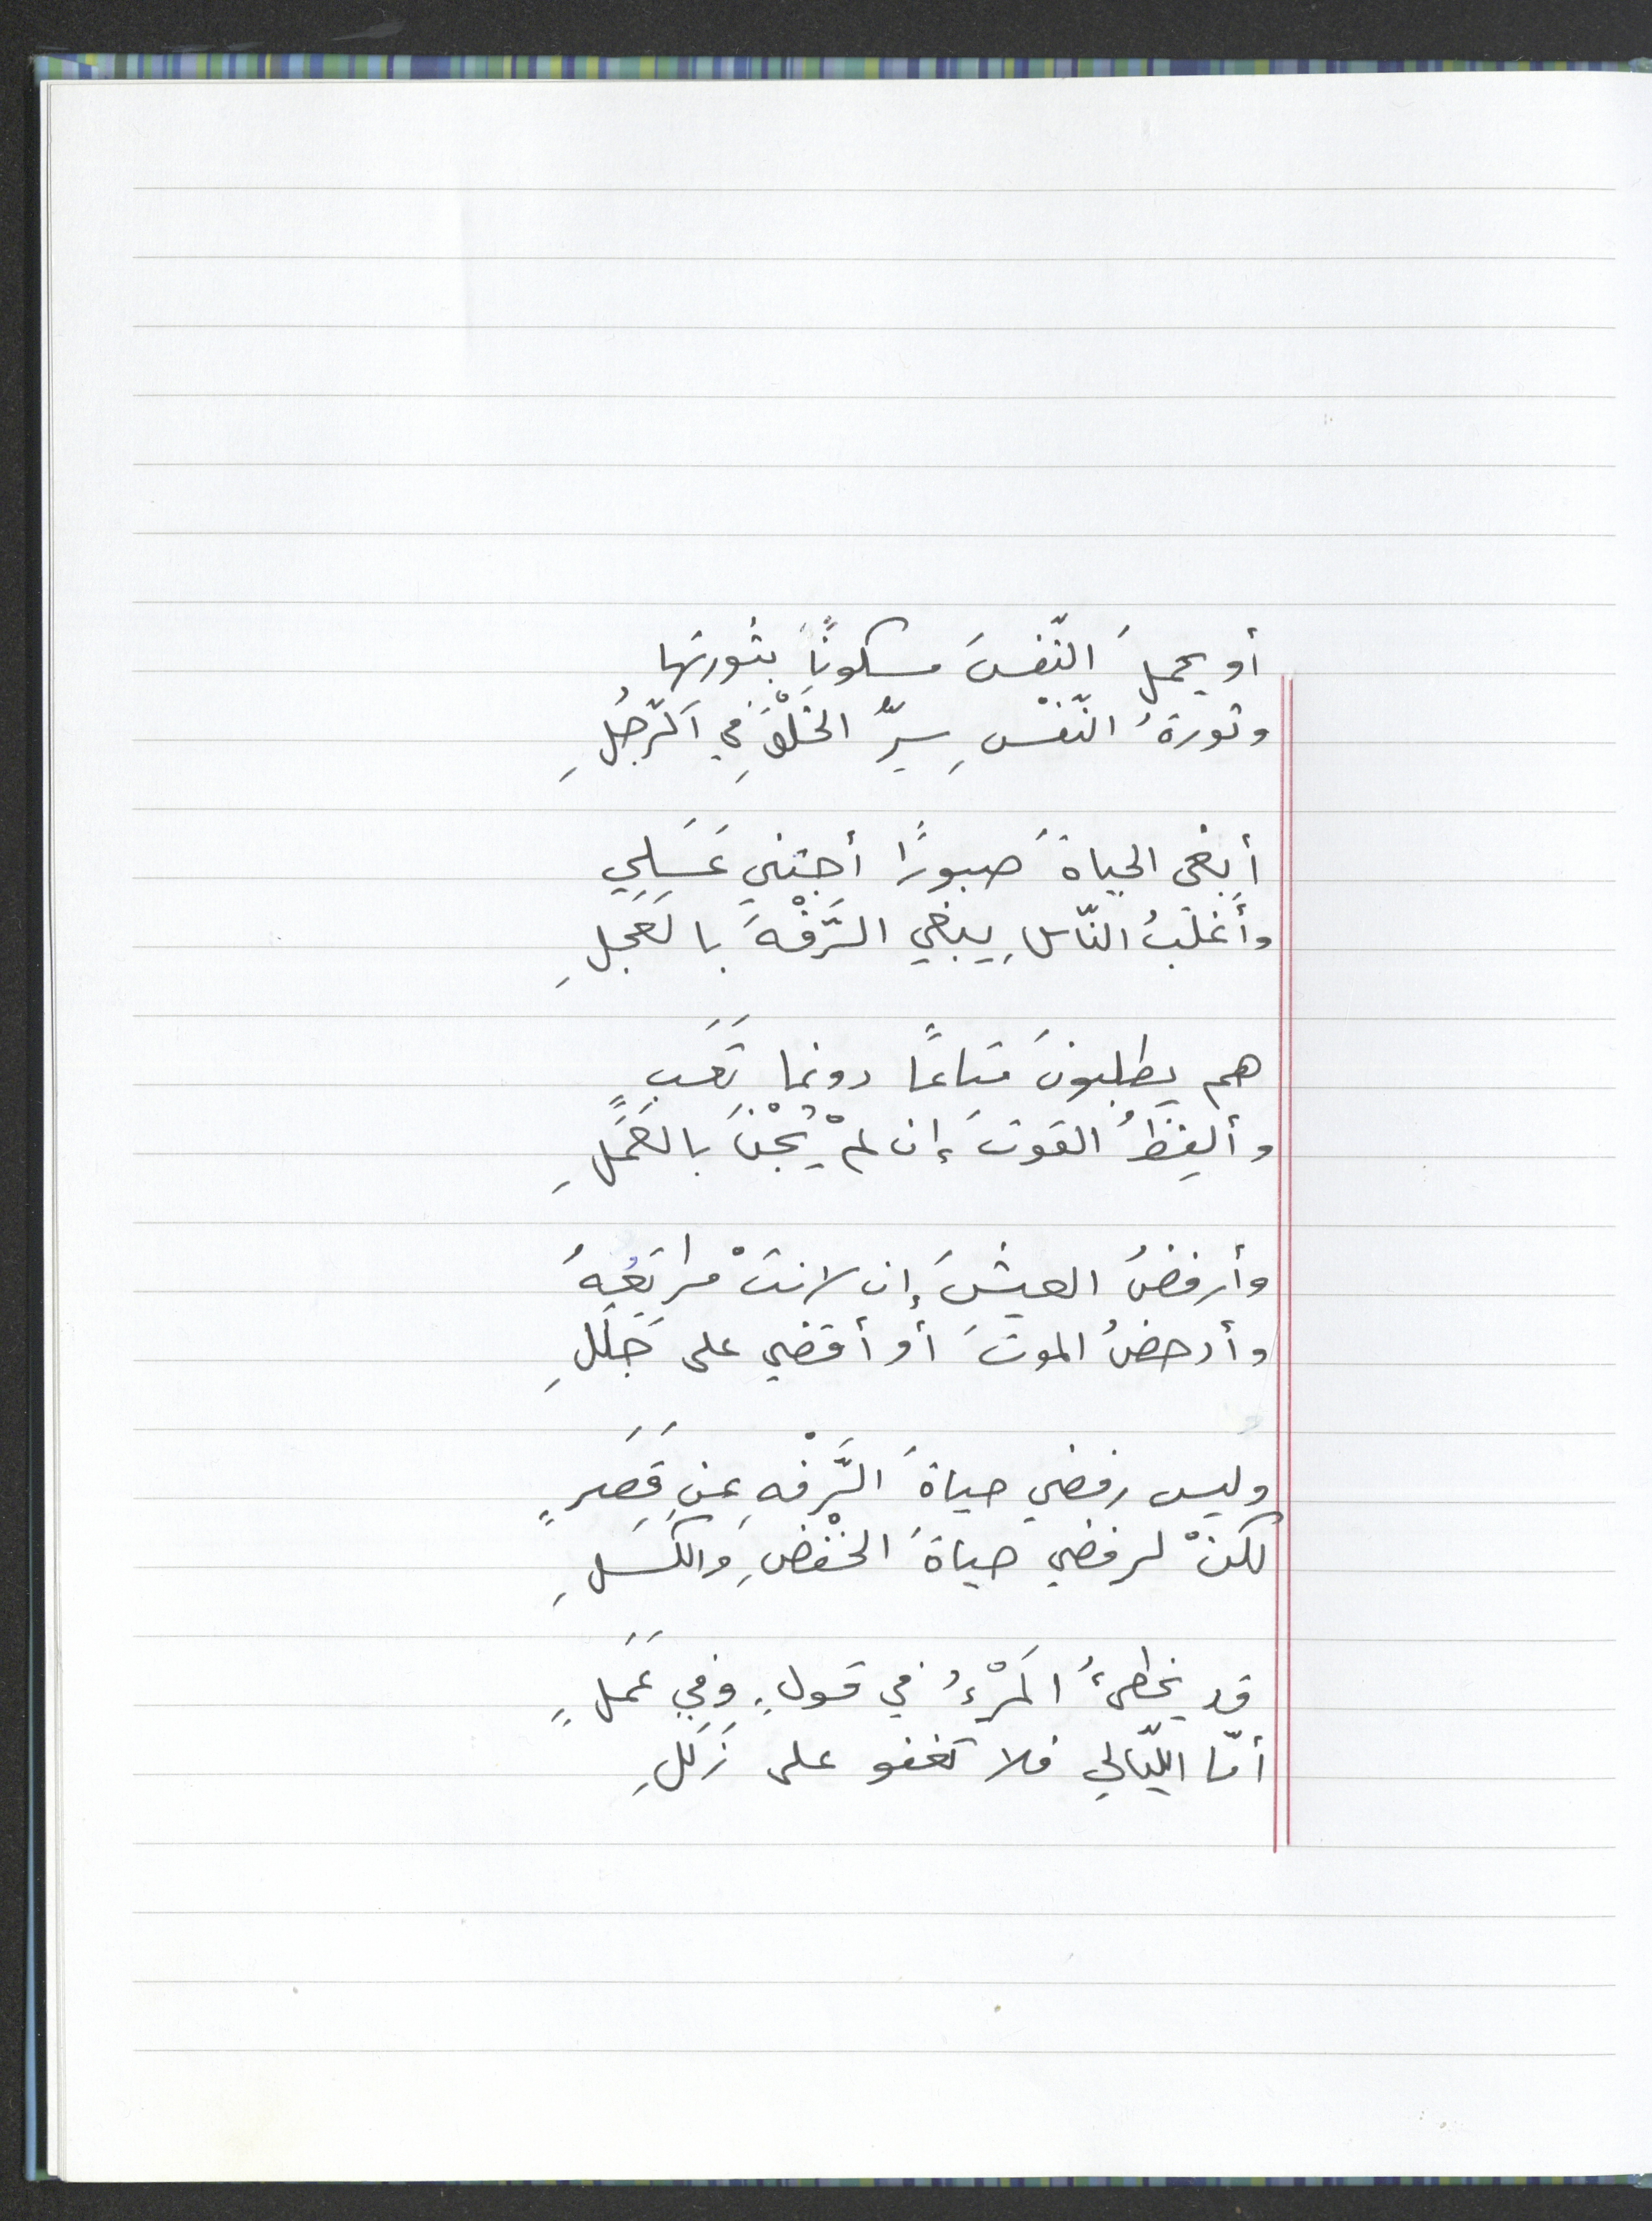 أو يحملَ النّفسَ مسكونًا بثورتها
وثورةُ النّفْسِ سِرُّ الخَلْقِ في الرّجُلِ
أبغي الحياةَ صبورًا أجتني عَسَلِي
وأَغلَبُ النّاسِ يبغي الرَّفْهَ بالعَجلِ
هم يطلبونَ متاعًا دونما تَعَبٍ
وألفِظُ القوتَ إن لمْ يُجْنَ بالعَمَلِ
وأرفضُ العيشَ إن لانتْ مراتِعُهُ
وأدحضُ الموتَ أو أقضي على جَلَلِ
وليس رفضي حياةَ الرَّفْهِ عن قِصَرٍ
لكنْ لرفضي حياةَ الخفْضِ والكَسَلِ
قد يخطىءُ المَرْءُ في قولٍ وفي عَمَلٍ
أمّا اللّيالي فلا تغفو على زَلَلِ